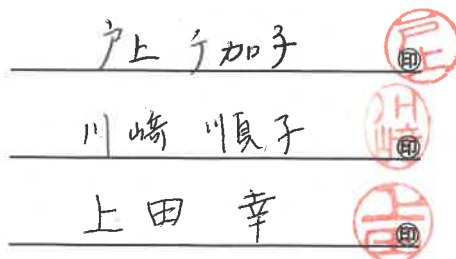 戸上 千加子 ㊞
川﨑 順子 ㊞
上田 幸 ㊞